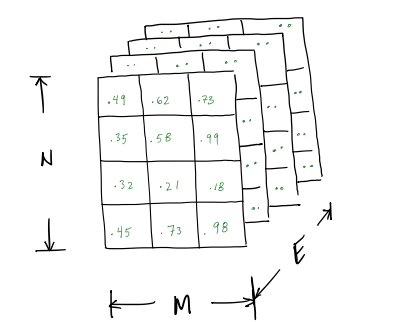 .49 .62 .73
.35 .58 .99
N
.32 .21 .18
.45 .73 .98
E
M